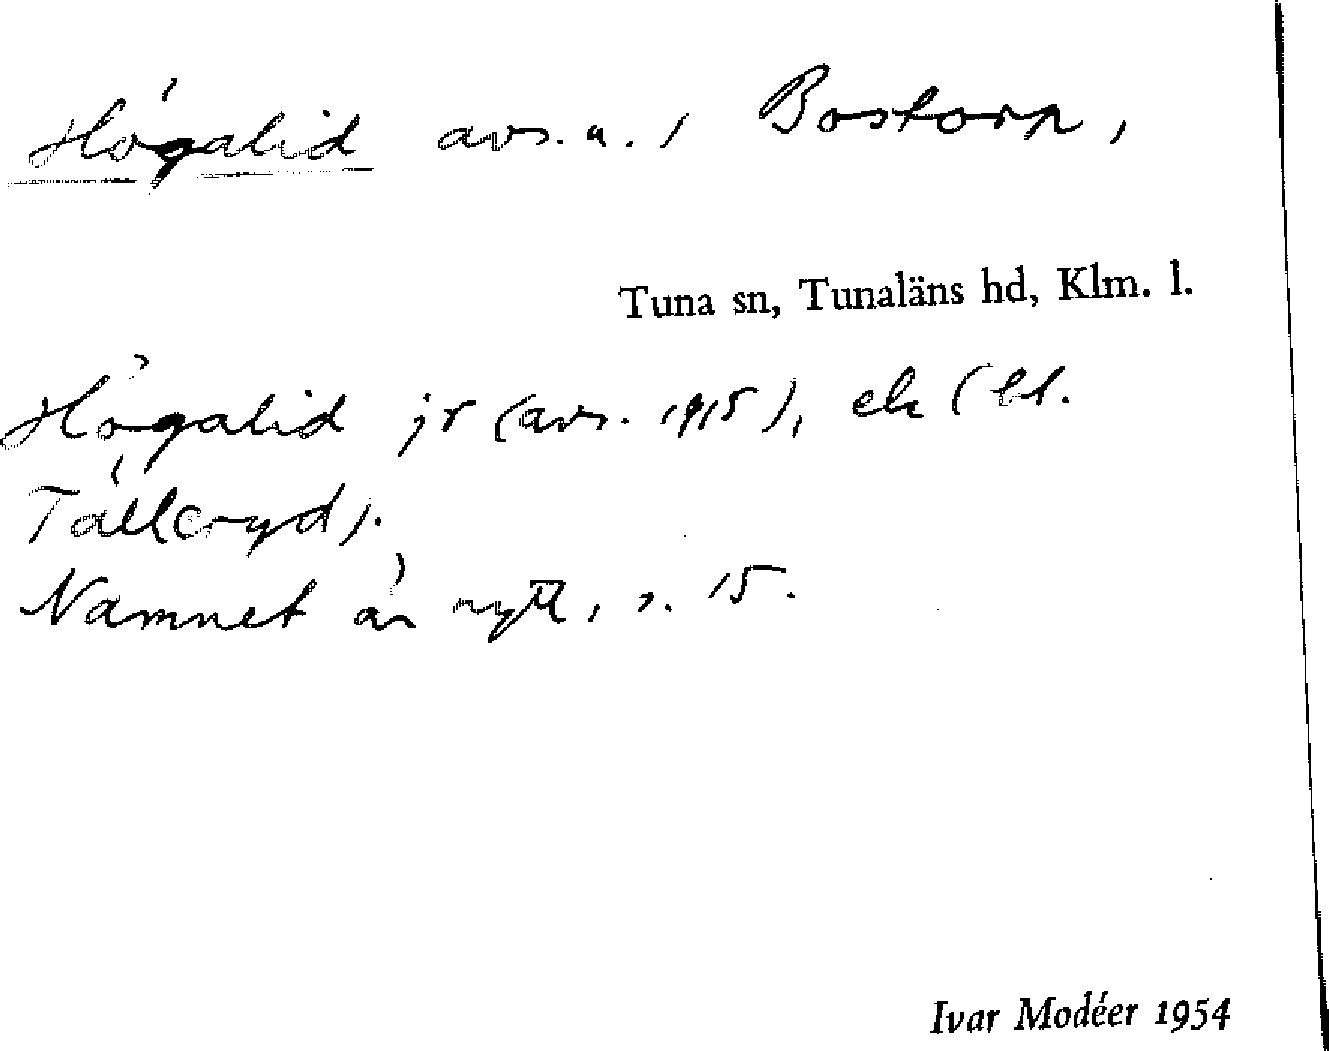 Högalid avs. u. Bostorp,
Tuna sn, Tunaläns hd, Klm. l.
Högalid jr (avs. 1915), ek (bl.
Tälleryd).
Namnet är nytt, s. 15.
Ivar Modéer 1954